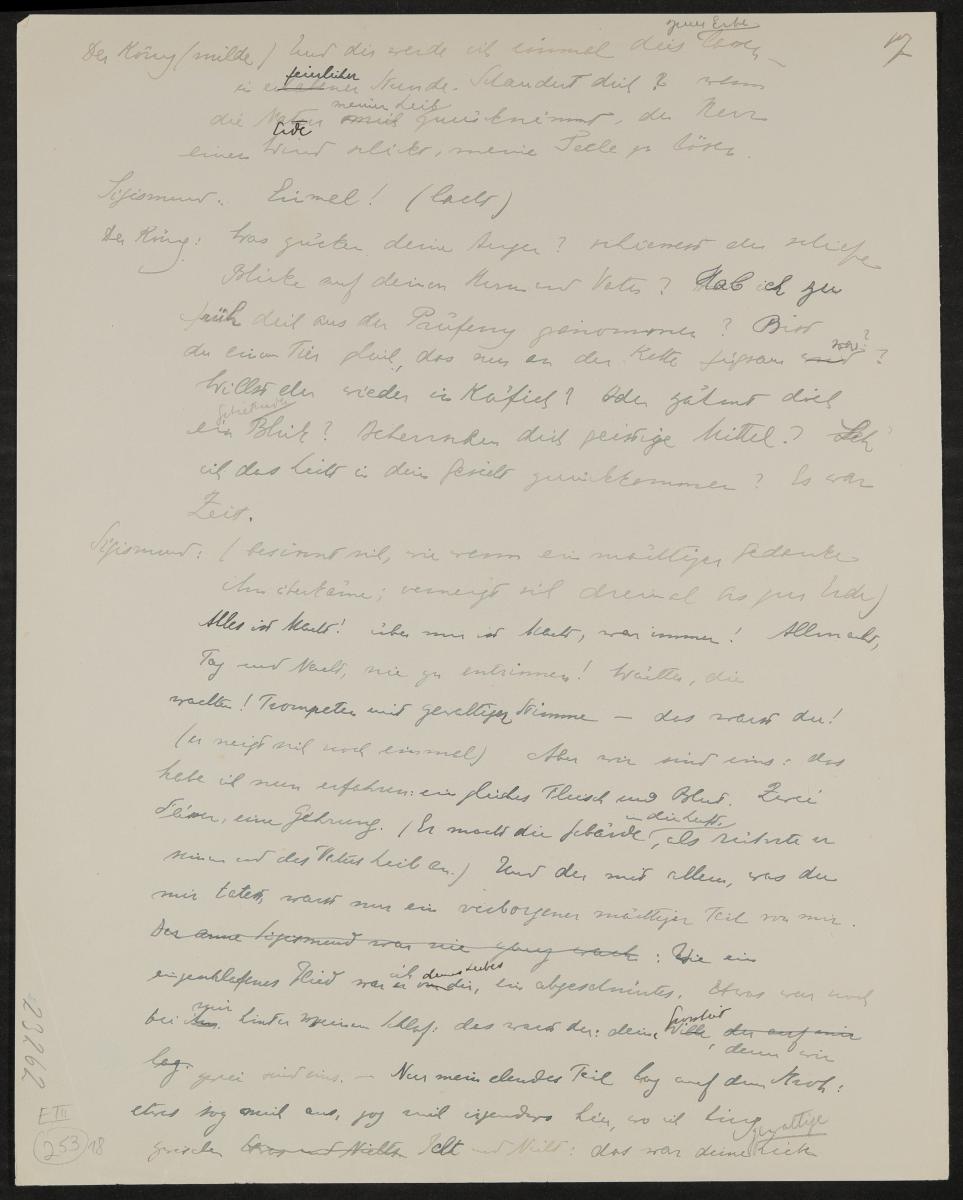 zum Erbe
17
Der König (milde) Und dir werde ich einmal dies lassen
feierlicher
in Stunde. Schaudert dich? wenn
meinen Leib
die Natur mich zurücknimmt, der Herr
einen Wind schickt, meine Seele zu lösen.
Sigismund: Einmal! (lacht)
Der König: Was zucken deine Augen? schiessest du schiefe
Blicke auf deinen Herrn und Vater? Hab ich zu
früh dich aus der Prüfung genommen? Bist
du einem Tier gleich, das nur an der Kette
Willst du wieder in Käfich? Oder zähmt dich
ein Blick? Beherrschen dich geistige Mittel? Seh
ich das Licht in dein Gesicht zurückkommen? Es war
Zeit.
Sigismund: (besinnt sich, wie wenn ein mächtiger Gedanke
ihn überkäme; verneigt sich dreimal bis zur Erde)
Alles ist Macht! über mir ist Macht, war immer! Allmacht,
Tag und Nacht, nie zu entrinnen! Wächter, die
wachten! Trompeten mit gewaltiger Stimme — das warst du!
(er neigt sich noch einmal) Aber wir sind eins: das
habe ich nun erfahren: ein gleiches Fleisch und Blut. Zwei
in die Luft,
eine Gährung. (Er macht die Gebärde, als rührte er
seinen und des Vaters Leib an.) Und du mit allem, was du
mir tatest, warst nur ein verborgener mächtiger Teil von mir.
Der arme Sigismund war nie ganz wach: Wie ein
ich deines Leibes
eingeschlafenes Glied war er von dir, ein abgeschnürtes. Etwas war noch
mir
bei ihm hinter meinem Schlaf: das warst du: dein Wille der auf mir
, denn wir
lag. zwei sind eins. — Nur mein elender Teil lag auf dem Stroh:
etwas sog mich aus, zog mich irgendwo hin, wo ich hing
gewaltige
zwischen Etwas und Nichts Icht und Nicht: das war deine
23262
E III
253 18